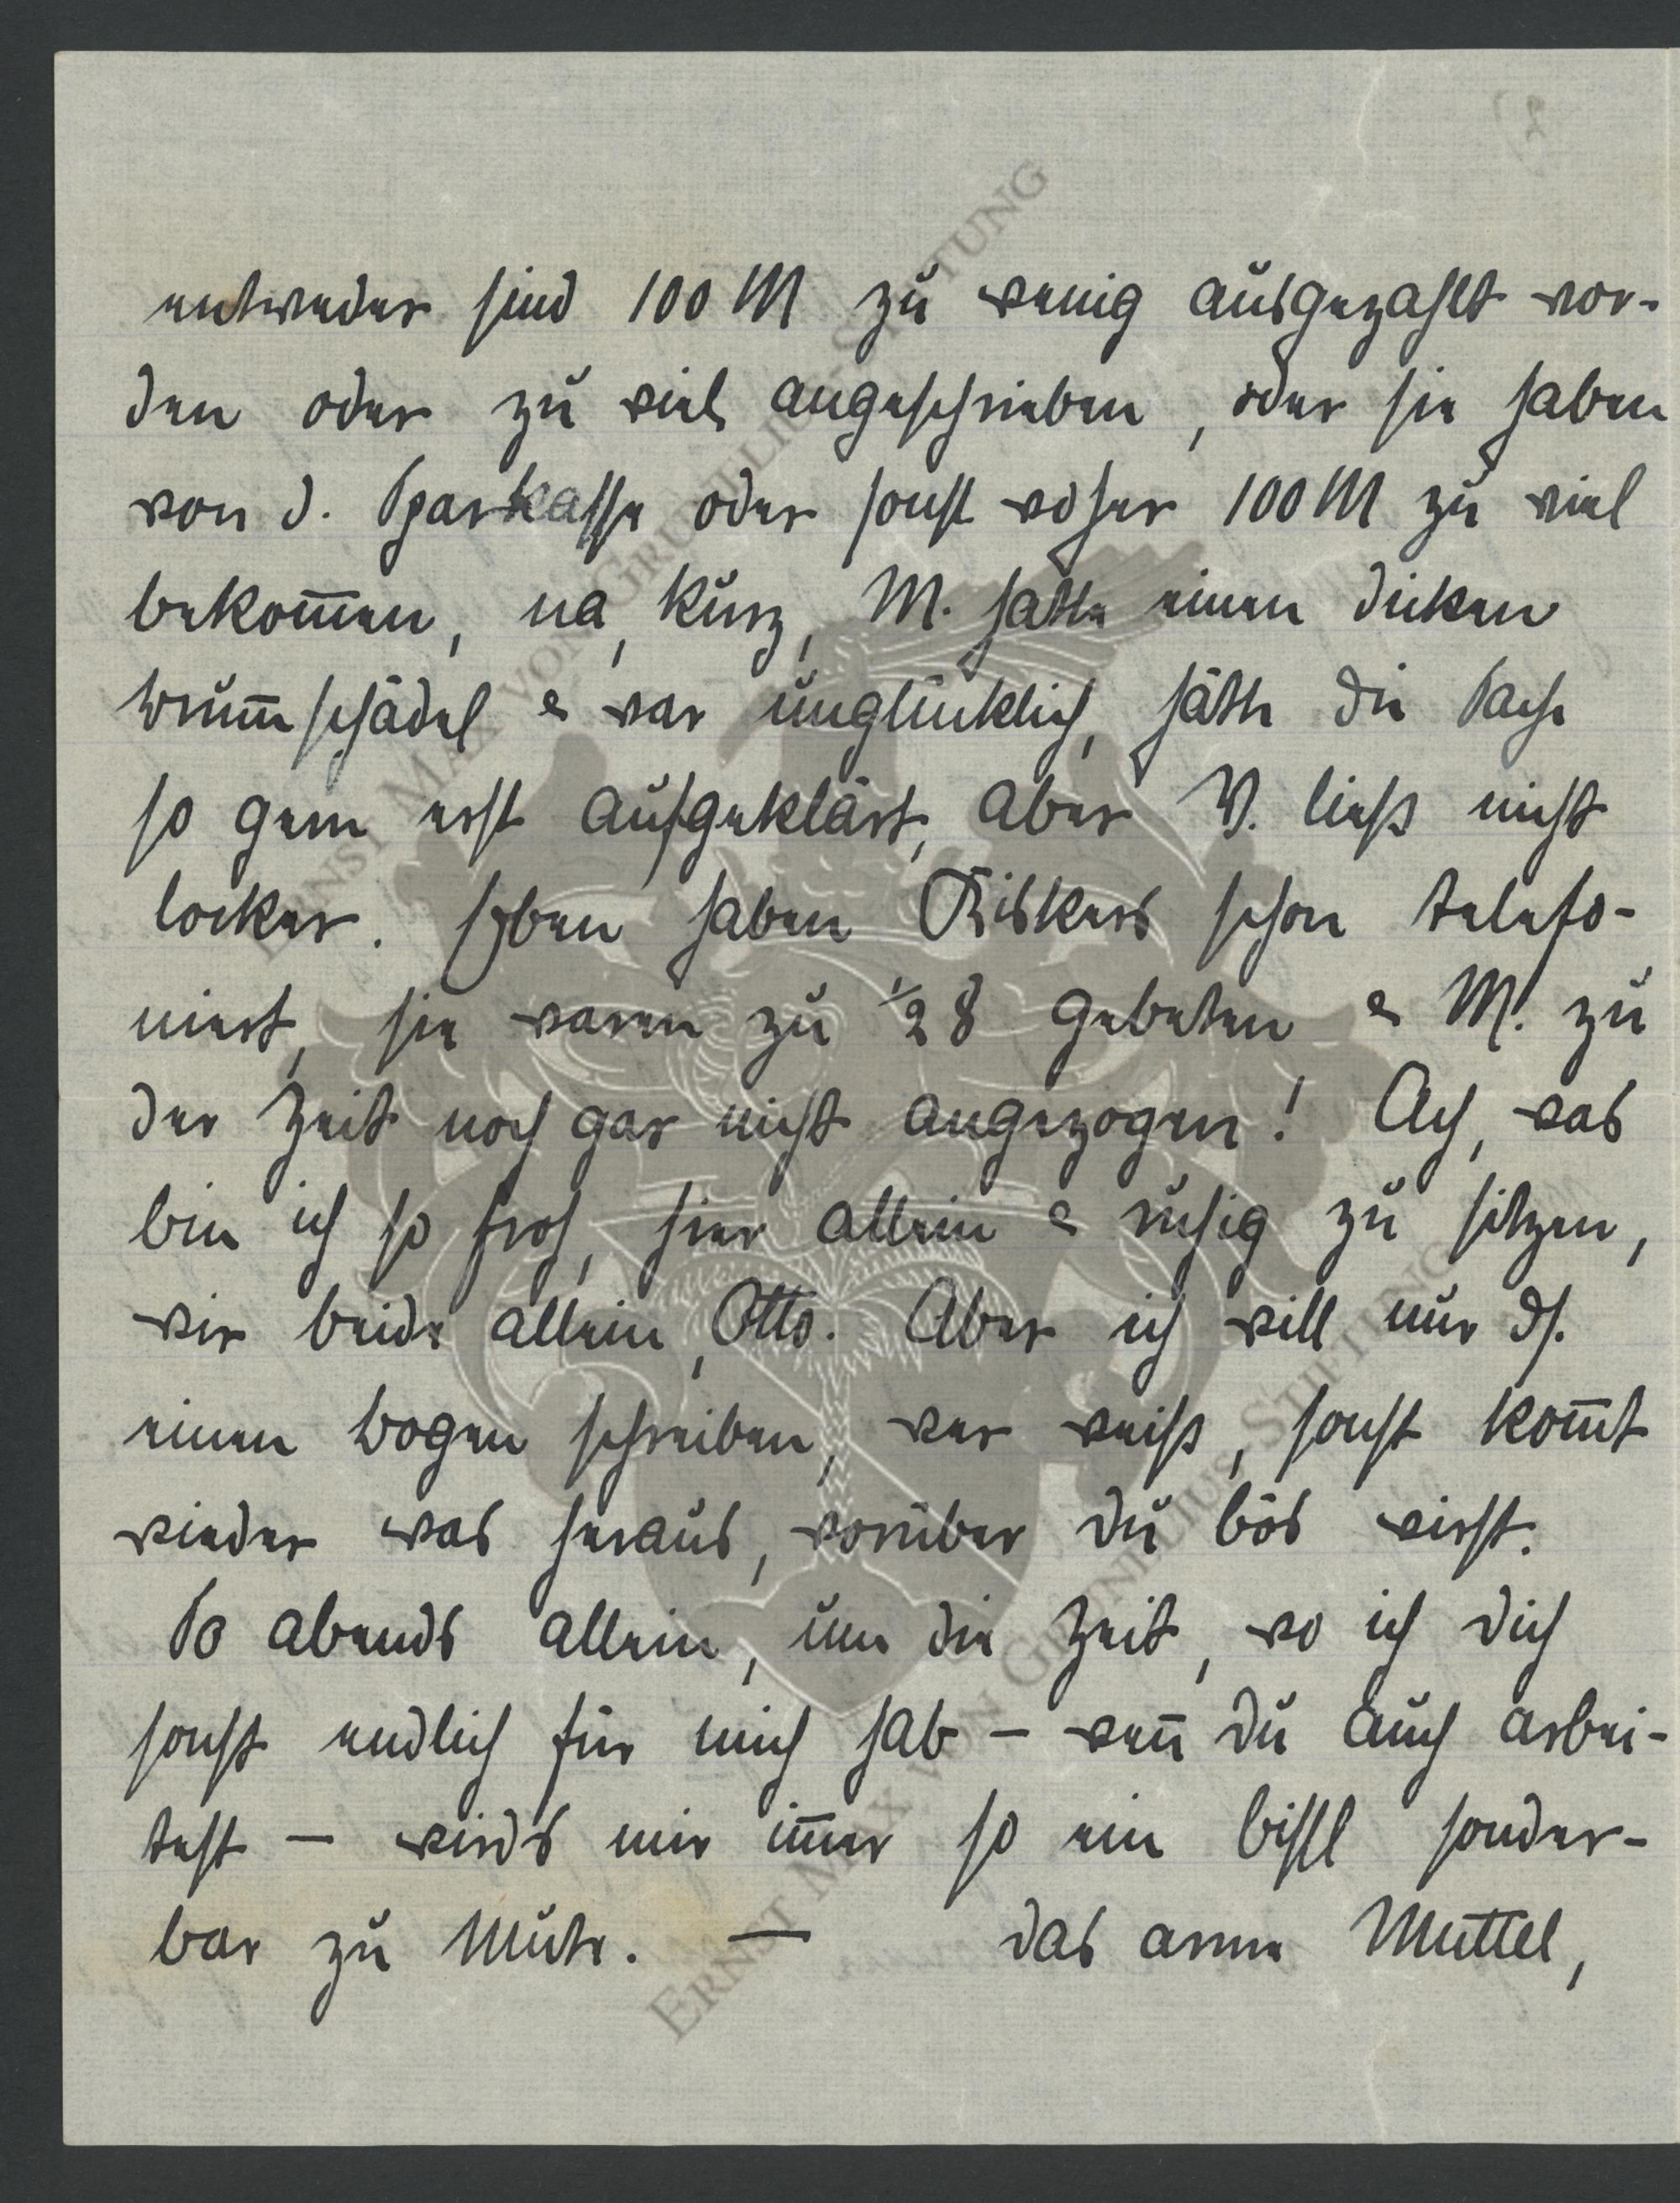 entweder sind 100 M zu wenig ausgezahlt wor-
den oder zu viel angeschrieben, oder sie haben
von d. Sparkasse oder sonst woher 100 M zu viel
bekom̅en, na, kurz, M. hatte einen dicken
Brum̅schädel & war unglücklich, hätte die Sache
so gern erst aufgeklärt, aber V. liess nicht
locker. Eben haben Riskers schon telefo-
niert, sie waren zu ½ 8 gebeten & M. zu
der Zeit noch gar nicht angezogen! Ach, was
bin ich so froh, hier allein & ruhig zu sitzen,
wir beide allein, Otto. Aber ich will nur
einen Bogen schreiben, wer weiss, sonst kom̅t
wieder was heraus, worüber du bös wirst.
So abends allein, um die Zeit, wo ich dich
sonst endlich für mich hab – wen̅ du auch arbei-
test – wirds mir im̅er so ein bissl sonder-
bar zu Mute. — Das arme Muttel,
ERNST MAX VON GRUNELIUS STIFTUNG
ERNST MAX VON GRUNELIUS STIFTUNG